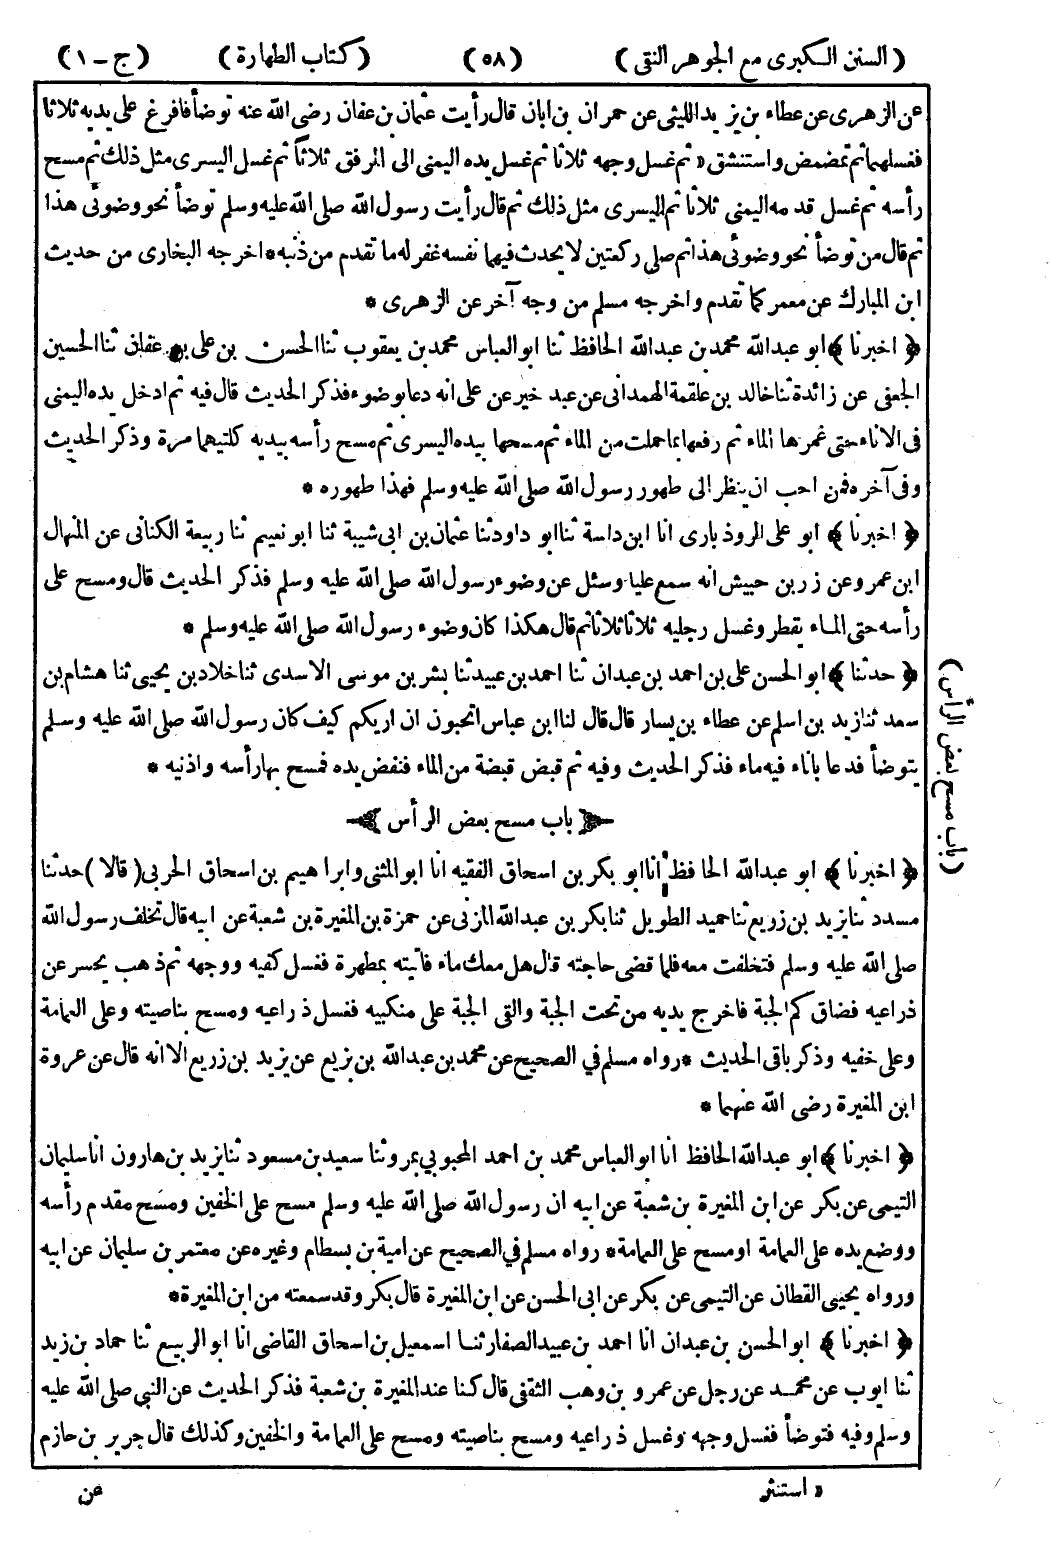 (السنن الكبرى مع الجوهر النقى) (٥٨) (كتاب الطهارة) (ج-١)
عن الزهرى عن عطاء بن يزيد الليثى عن حمران بن ابان قال رأيت عثمان بن عفان رضى الله عنه توضأ فافرغ على يديه ثلاثا
فغسلهما ثم تمضمض واستنشق ٭ ثم غسل وجهه ثلاثا ثم غسل يده اليمنى الى المرفق ثلاثاً ثم غسل اليسرى مثل ذلك ثم مسح
رأسه ثم غسل قدمه اليمنى ثلاثا ثم اليسرى مثل ذلك ثم قال رأيت رسول الله صلى الله عليه وسلم توضأ نحو وضوئى هذا
ثم قال من توضأ نحو وضوئى هذا ثم صلى ركعتين لا يحدث فيهما نفسه غفر له ما تقدم من ذنبه * اخرجه البخارى من حديث
ابن المبارك عن معمر كما تقدم واخرجه مسلم من وجه آخر عن الزهرى *
﴿اخبرنا﴾ ابو عبدالله محمد بن عبدالله الحافظ ثنا ابو العباس محمد بن يعقوب ثنا الحسن بن على بن عفان ثنا الحسين
الجعفى عن زائدة ثنا خالد بن علقمة الهمدانى عن عبد خير عن على انه دعا بوضوء فذكر الحديث قال فيه ثم ادخل يده اليمنى
فى الاناء حتى غمرها الماء ثم رفعها بما حملت من الماء ثم مسحها بيده اليسرى ثم مسح رأسه بيديه كلتيهما مرة وذكر الحديث
وفى آخره فمن احب ان ينظر الى طهور رسول الله صلى الله عليه وسلم فهذا طهوره *
﴿اخبرنا﴾ ابو على الروذبارى انا ابن داسة ثنا ابو داود ثنا عثمان بن ابى شيبة ثنا ابو نعيم ثنا ربيعة الكنانى عن المنهال
ابن عمرو عن زر بن حبيش انه سمع عليا وسئل عن وضوء رسول الله صلى الله عليه وسلم فذكر الحديث قال ومسح على
رأسه حتى الماء يقطر وغسل رجليه ثلاثا ثلاثا ثم قال هكذا كان وضوء رسول الله صلى الله عليه وسلم *
﴿حدثنا﴾ ابو الحسن على بن احمد بن عبدان ثنا احمد بن عبيد ثنا بشر بن موسى الاسدى ثنا خلاد بن يحيى ثنا هشام بن
سعد ثنا زيد بن اسلم عن عطاء بن يسار قال قال لنا ابن عباس اتحبون ان اريكم كيف كان رسول الله صلى الله عليه وسلم
يتوضأ فدعا باناء فيه ماء فذكر الحديث وفيه ثم قبض قبضة من الماء فنفض يده فمسح بها رأسه واذنيه *
باب مسح بعض الرأس
(باب مسح بعض الرأس)
﴿اخبرنا﴾ ابو عبدالله الحافظ انا ابو بكر بن اسحاق الفقيه انا ابو المثنى وابراهيم بن اسحاق الحربى (قالا) حدثنا
مسدد ثنا يزيد بن زريع ثنا حميد الطويل ثنا بكر بن عبدالله المزنى عن حمزة بن المغيرة بن شعبة عن ابيه قال تخلف رسول الله
صلى الله عليه وسلم فتخلفت معه فلما قضى حاجته قال هل معك ماء فاتيته بمطهرة فغسل كفيه ووجهه ثم ذهب يحسر عن
ذراعيه فضاق كم الجبة فاخرج يديه من تحت الجبة والقى الجبة على منكبيه فغسل ذراعيه ومسح بناصيته وعلى العمامة
وعلى خفيه وذكر باقى الحديث * رواه مسلم فى الصحيح عن محمد بن عبدالله بن بزيع عن يزيد بن زريع الا انه قال عن عروة
ابن المغيرة رضى الله عنهما *
﴿اخبرنا﴾ ابو عبدالله الحافظ انا ابو العباس محمد بن احمد المحبوبى بمرو ثنا سعيد بن مسعود ثنا يزيد بن هارون انا سليمان
التيمى عن بكر عن ابن المغيرة بن شعبة عن ابيه ان رسول الله صلى الله عليه وسلم مسح على الخفين ومسح مقدم رأسه
ووضع يده على العمامة او مسح على العمامة * رواه مسلم فى الصحيح عن امية بن بسطام وغيره عن معتمر بن سليمان عن ابيه
ورواه يحيى القطان عن التيمى عن بكر عن ابى الحسن عن ابن المغيرة قال بكر وقد سمعته من ابن المغيرة *
﴿اخبرنا﴾ ابو الحسن بن عبدان انا احمد بن عبيد الصفار ثنا اسمعيل بن اسحاق القاضى انا ابو الربيع ثنا حماد بن زيد
ثنا ايوب عن محمد عن رجل عن عمرو بن وهب الثقفى قال كنا عند المغيرة بن شعبة فذكر الحديث عن النبى صلى الله عليه
وسلم وفيه فتوضأ فغسل وجهه وغسل ذراعيه ومسح بناصيته ومسح على العمامة والخفين وكذلك قال جرير بن حازم
٭ استنثر
عن